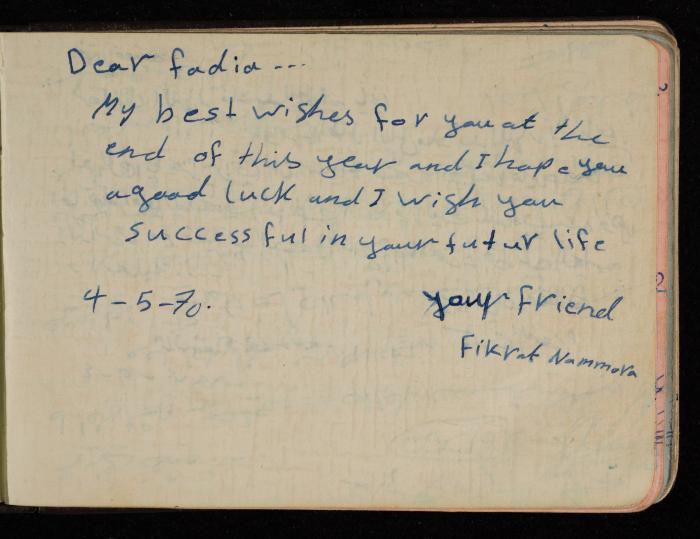 Dear fadia...
My best wishes for you at the
end of this year and I hope you
a good luck and I wish you
successful in your futur life
4-5-70.
your friend
Fikrat Nammora